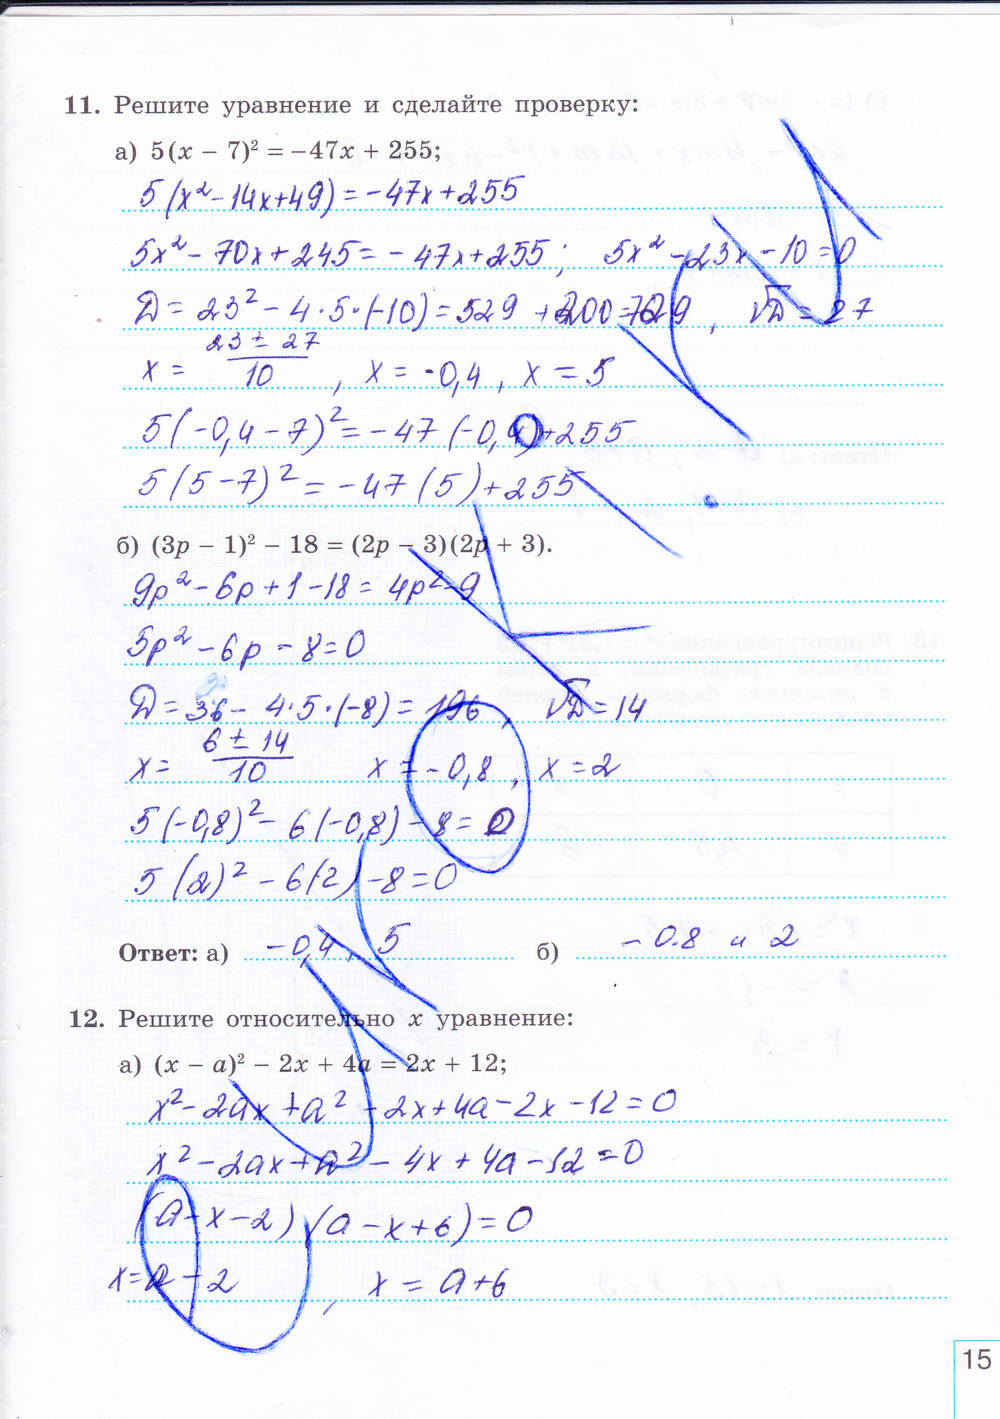 11. Решите уравнение и сделайте проверку:
а) 5(x − 7)² = −47x + 255;
5(x² - 14x + 49) = -47x + 255
5x² - 70x + 245 = -47x + 255; 5x² - 23x - 10 = 0
D = 23² - 4·5·(-10) = 529 + 200 = 729, √D = 27
x = (23 ± 27)/10, x = -0,4, x = 5
5(-0,4 - 7)² = -47(-0,4) + 255
5(5 - 7)² = -47(5) + 255
б) (3p − 1)² − 18 = (2p − 3)(2p + 3).
9p² - 6p + 1 - 18 = 4p² - 9
5p² - 6p - 8 = 0
D = 36 - 4·5·(-8) = 196, √D = 14
x = (6 ± 14)/10 x = -0,8, x = 2
5(-0,8)² - 6(-0,8) - 8 = 0
5(2)² - 6(2) - 8 = 0
Ответ: а) -0,4, 5 б) -0.8 и 2
12. Решите относительно x уравнение:
а) (x − a)² − 2x + 4a = 2x + 12;
x² - 2ax + a² - 2x + 4a - 2x - 12 = 0
x² - 2ax + a² - 4x + 4a - 12 = 0
(a - x - 2)(a - x + 6) = 0
x = a - 2, x = a + 6
15